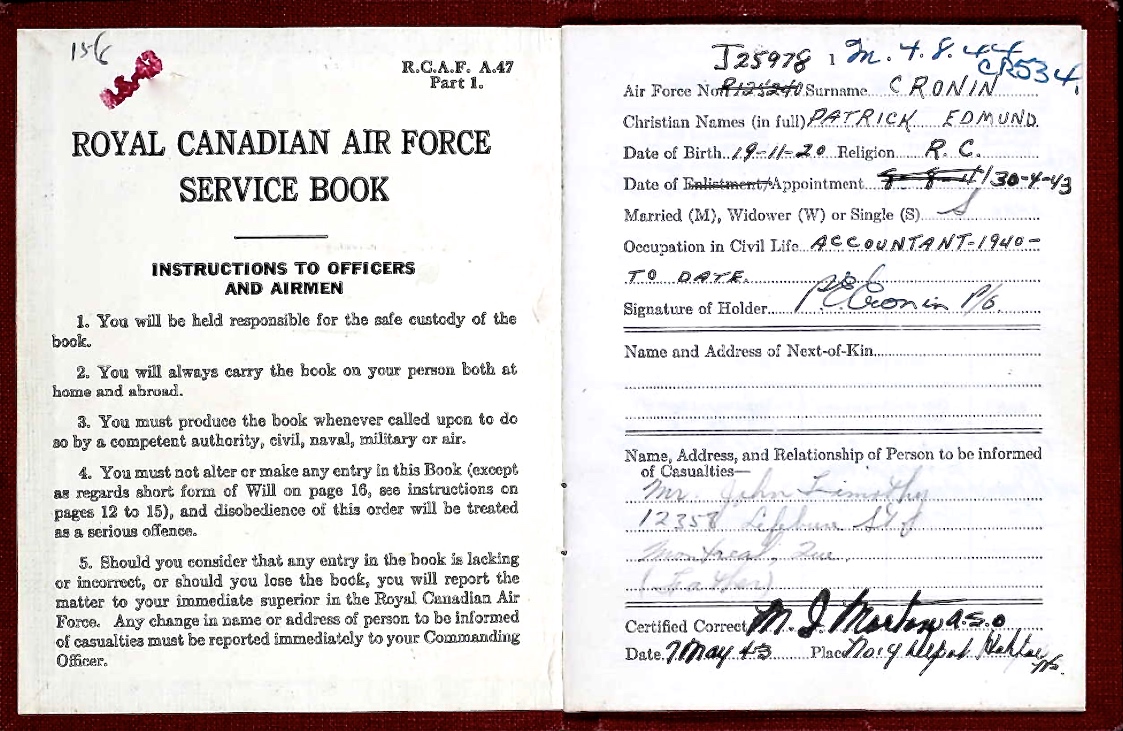 156
R.C.A.F. A.47
Part 1.
ROYAL CANADIAN AIR FORCE
SERVICE BOOK
INSTRUCTIONS TO OFFICERS
AND AIRMEN
1. You will be held responsible for the safe custody of the
book.
2. You will always carry the book on your person both at
home and abroad.
3. You must produce the book whenever called upon to do
so by a competent authority, civil, naval, military or air.
4. You must not alter or make any entry in this Book (except
as regards short form of Will on page 16, see instructions on
pages 12 to 15), and disobedience of this order will be treated
as a serious offence.
5. Should you consider that any entry in the book is lacking
or incorrect, or should you lose the book, you will report the
matter to your immediate superior in the Royal Canadian Air
Force. Any change in name or address of person to be informed
of casualties must be reported immediately to your Commanding
Officer.
J25978 1 M. 4.8.44
CR534.
Air Force No. R125240 Surname CRONIN
Christian Names (in full) PATRICK EDMUND
Date of Birth 19-11-20 Religion R.C.
Date of Enlistment/Appointment 8-8-41 30-4-43
Married (M), Widower (W) or Single (S) S
Occupation in Civil Life ACCOUNTANT-1940-
TO DATE.
Signature of Holder P.E. Cronin P/O.
Name and Address of Next-of-Kin
Name, Address, and Relationship of Person to be informed
of Casualties—
Mr. John Timothy
12358 St
Montreal, Que,
(Father)
Certified Correct M. J. Morton A.S.O
Date 7 May 43 Place No. 4 Depot Halifax
NS.